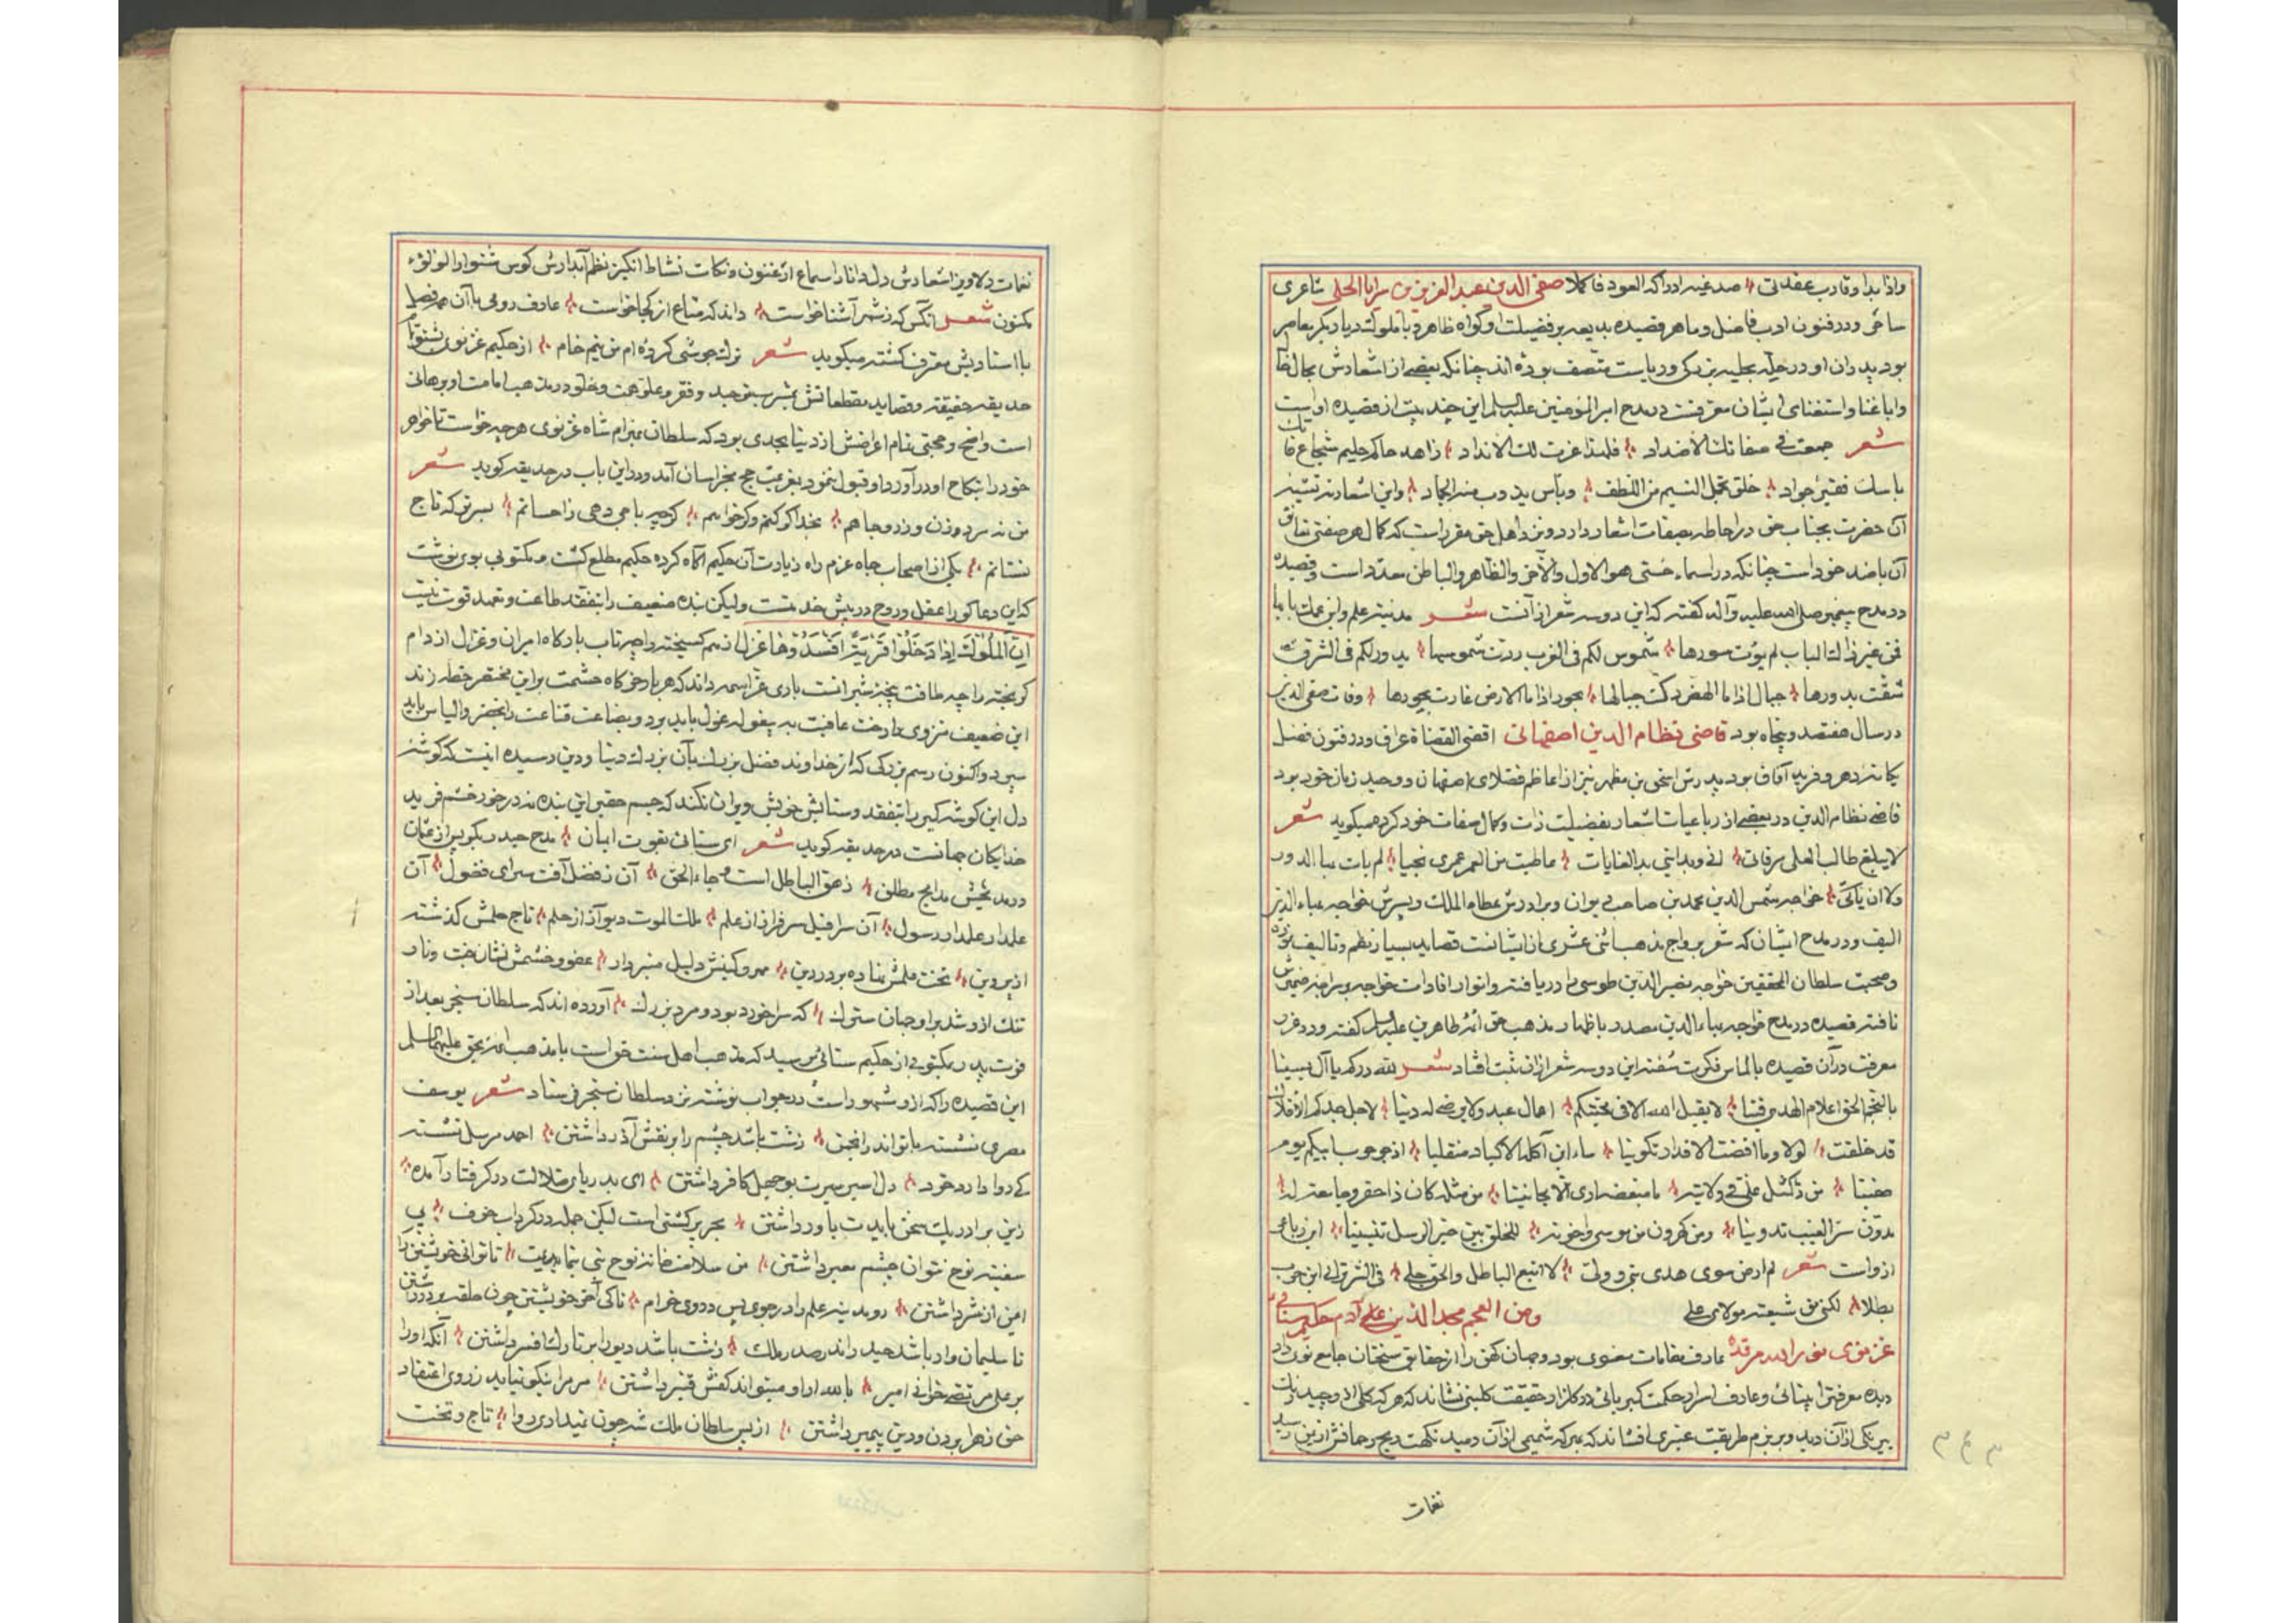 واذا بدا وقارب عقدتی صد غیه ادراکه العود فاکملا صفی الدین عبد العزیز بن سرایا الحلی شاعری
ساحر ودر فنون ادب فاضل وماهر وقصیده بدیعیه بر فضیلت او گواه ظاهر وبا ملوک دیار بکر معاصر
بود پدران او در حیله بحلیه بزرگی وریاست متصف بوده اند چنانکه بعضی از اشعارش بحال
وابا غنا واستغنای ایشان معرفست در مدح امیر المؤمنین علیه السلم این چند بیت از قصیده اوست
شعر جمعت فی صفاتک الاضداد فلهذا عزت لک الانداد زاهد حاکم حلیم شجاع فاتک
ناسک فقیر جواد خلق یخجل النسیم من اللطف وبأس یذوب منه الجماد واین اشعار در تشبیه
آن حضرت بجناب حق در احاطه بصفات اشعار دارد ونزد اهل حق مقرر است که کمال هر صفتی تعانق
آن باضد خود است چنانکه در اسماء حسنی هو الاول والآخر والظاهر والباطن معدد است وقصیده
در مدح پیغمبر صلی الله علیه وآله گفته که این دو سه شعر از آنست شعر مدینة علم وابن عمک بابها
فمن غیر ذاک الباب لم یؤت سورها شموس لکم فی الغرب ردت شموسها بدور لکم فی الشرق
شقت بدورها جبال اذا ما الهضب دکت جبالها بحور اذا ما الارض غارت بحورها وفات صفی الدین
در سال هفتصد وپنجاه بود قاضی نظام الدین اصفهانی اقضی القضاة عراق ودر فنون فضل
یگانه دهر وفرید آفاق بود پدرش اسحق بن مظهر نیز از اعاظم فضلای اصفهان و وحید زمان خود بود
قاضی نظام الدین در بعضی از رباعیات اشعار بفضیلت ذات وکمال صفات خود کرده میگوید شعر
لا یبلغ طالب العلی مرقاتی انی وبدایتی بد الغایات ما طبت من العمر عمری نجیا لم یات بنا الدور
ولا ان یأتی خواجه شمس الدین محمد بن صاحب دیوان وبرادرش عطاء الملک وپسرش خواجه بهاء الدین
الیف ودر مدح ایشان که شعر بر رواج مذهب اثنی عشری از ایشانست قصاید بسیار نظم وتالیف نموده
وصحبت سلطان المحققین خواجه نصیر الدین طوسی را دریافته وانوار افادات خواجه بر سراچه ضمیرش
تافته قصیده در مدح خواجه بهاء الدین مصدر باظهار مذهب حق ائمه طاهرین علیهم السلم گفته ودر غرر
معرفت در آن قصیده بالماس فکرت سفته این دو سه شعر از آن ثبت افتاد شعر لله درکم یا آل یسینا
یا انجم الحق اعلام الهدی فینا لا یقبل الله الا فی محبتکم اعمال عبد ولا یرضی له دینا لاجل جدکم الافلاک
قد خلقت لولاه ما اقضت الاقدار تکوینا
صفینا من ذا کمثل علی فی ولایته ما مبغضه اری الا مجانینا من مثله کان ذا جفر وجامعة له
یدون سر الغیب تدوینا ومن کهرون من موسی واخوته للخلق بین خیر الرسل تبیینا این رباعی
ازوست شعر لم ارض سوی هدی نبی وولی لا اتبع الباطل والحق جلی
بطلا لکنی من شیعة مولای علی ومن العجم مجد الدین علی آدم حکیم سنائی
غزنوی نور الله مرقده عارف مقامات معنوی بود وجهان کهن را از حقایق سخنان جامع نوی داد
دیده معرفتش بینائی وعارف اسرار حکمت کبریائی در گلزار حقیقت گلبنی نشاند که هر که گلی از وچید رنگ
بیرنگی از آن دید وبر بزم طریقت عنبری افشاند که هر که شمیمی از آن دمید نکهت ریح رحمانش ازین رسید
نغمات
نغمات دلاویز اشعارش دل دانا را سماع ارغنون ونکات نشاط انگیز نظم آبدارش گوش شنوا را لؤلؤء
مکنون شعر آنکس که ز شهر آشنائیست داند که متاع از کجائیست عارف رومی با آن همه فضل
با استادیش معترف گشته میگوید شعر ترک جوشی کرده ام من نیم خام از حکیم غزنوی بشنو تمام
حدیقه حقیقه وقصاید مقطعاتش مشعر سبق جید وفقر وعلو همت وغلو در مذهب امامت او برهانی
است واضح وحجتی تمام اعراضش از دنیا بحدی بود که سلطان بهرام شاه غزنوی هر چه خواست تا خواهر
خود را بنکاح او در آورد او قبول ننمود بعزیمت حج بخراسان آمد ودر این باب در حدیقه گوید شعر
من نه مرد زن و زر وجاهم بخدا گر کنم وگر خواهم گر چه تاجی دهی ز احسانم بسر تو که تاج
نستانم یکی از اصحاب جاه عزم راه زیارت آن حکیم آگاه کرده حکیم مطلع گشت ومکتوبی بوی نوشت
که این دعاگو را عقل وروح در پیش خدمتست ولیکن بنده ضعیف را بتفقد طاعت وتعهد قوت نیست
إن الملوک إذا دخلوا قریة أفسدوها
گریخته را چه طاقت پنجه شیرانست باری عز اسمه داند که هر بار خرگاه حشمت بر این مختصر خطه زند
این ضعیف منزوی را رخت عافیت به بیغوله غول باید برد وبضاعت قناعت را بخضر والیاس باید
سپرد واکنون رسم بزرگی که از خداوند فضل بزرگ بآن بزرگ دنیا ودین رسیده اینست که گوشه
دل این گوشه گیر را بتفقد وستایش خویش ویران نکند که جسم حقیر این بنده نه در خور خشم فرید
خدایگان جهانست در حدیقه گوید شعر ای سنائی بقوت ایمان مدح حیدر بگو پس از عثمان
در مدیحش مدایح مطلق زهق الباطل است وجاء الحق آن ز فضل آفت سرای فضول آن
علمدار علمدار رسول آن سرافیل سرفراز از علم ملک الموت دیو آز از حلم تاج حلمش گذشته
از پروین تخت علمش نهاده بر در دین مهر وکینش دلیل منبر ودار عفو وخشمش نشان جنت ونار
تنگ از و شد بر او جهان سترگ که سرا خورد بود ومرد بزرگ آورده اند که سلطان سنجر بعد از
فوت پدر مکتوبی از حکیم سنائی پرسید که مذهب اهل سنت حق است یا مذهب ائمه بحق علیهم السلم
این قصیده را که از و مشهور است در جواب نوشته نزد سلطان سنجر فرستاد شعر یوسف
مصری نشسته با تو اندر انجمن زشت باشد چشم را بر نقش آذر داشتن احمد مرسل نشسته
کی روا دارد خرد دل اسیر سیرت بوجهل کافر داشتن ای بدریای ضلالت در گرفتار آمده
زین برادر یک سخن بایدت باور داشتن بحر پر کشتی است لیکن جمله در گرداب خوف بی
سفینه نوح نتوان چشم معبر داشتن من سلامت خانه نوح نبی بنمایمت تا توانی خویشتن را
ایمن از شر داشتن رو مدینه علم را در جوی پس در وی خرام تا کی آخر خویشتن چون حلقه بر در داشتن
تا سلیمان وار باشد حیدر اندر صدر ملک زشت باشد دیو را بر تارک افسر داشتن آنکه او را
بر علی مرتضی خوانی امیر بالله ار او میتواند کفش قنبر داشتن مر مرا نیکو نیاید ز روی اعتقاد
حق زهرا بردن ودین پیمبر داشتن از پس سلطان ملک شه چون نمیداری روا تاج وتخت